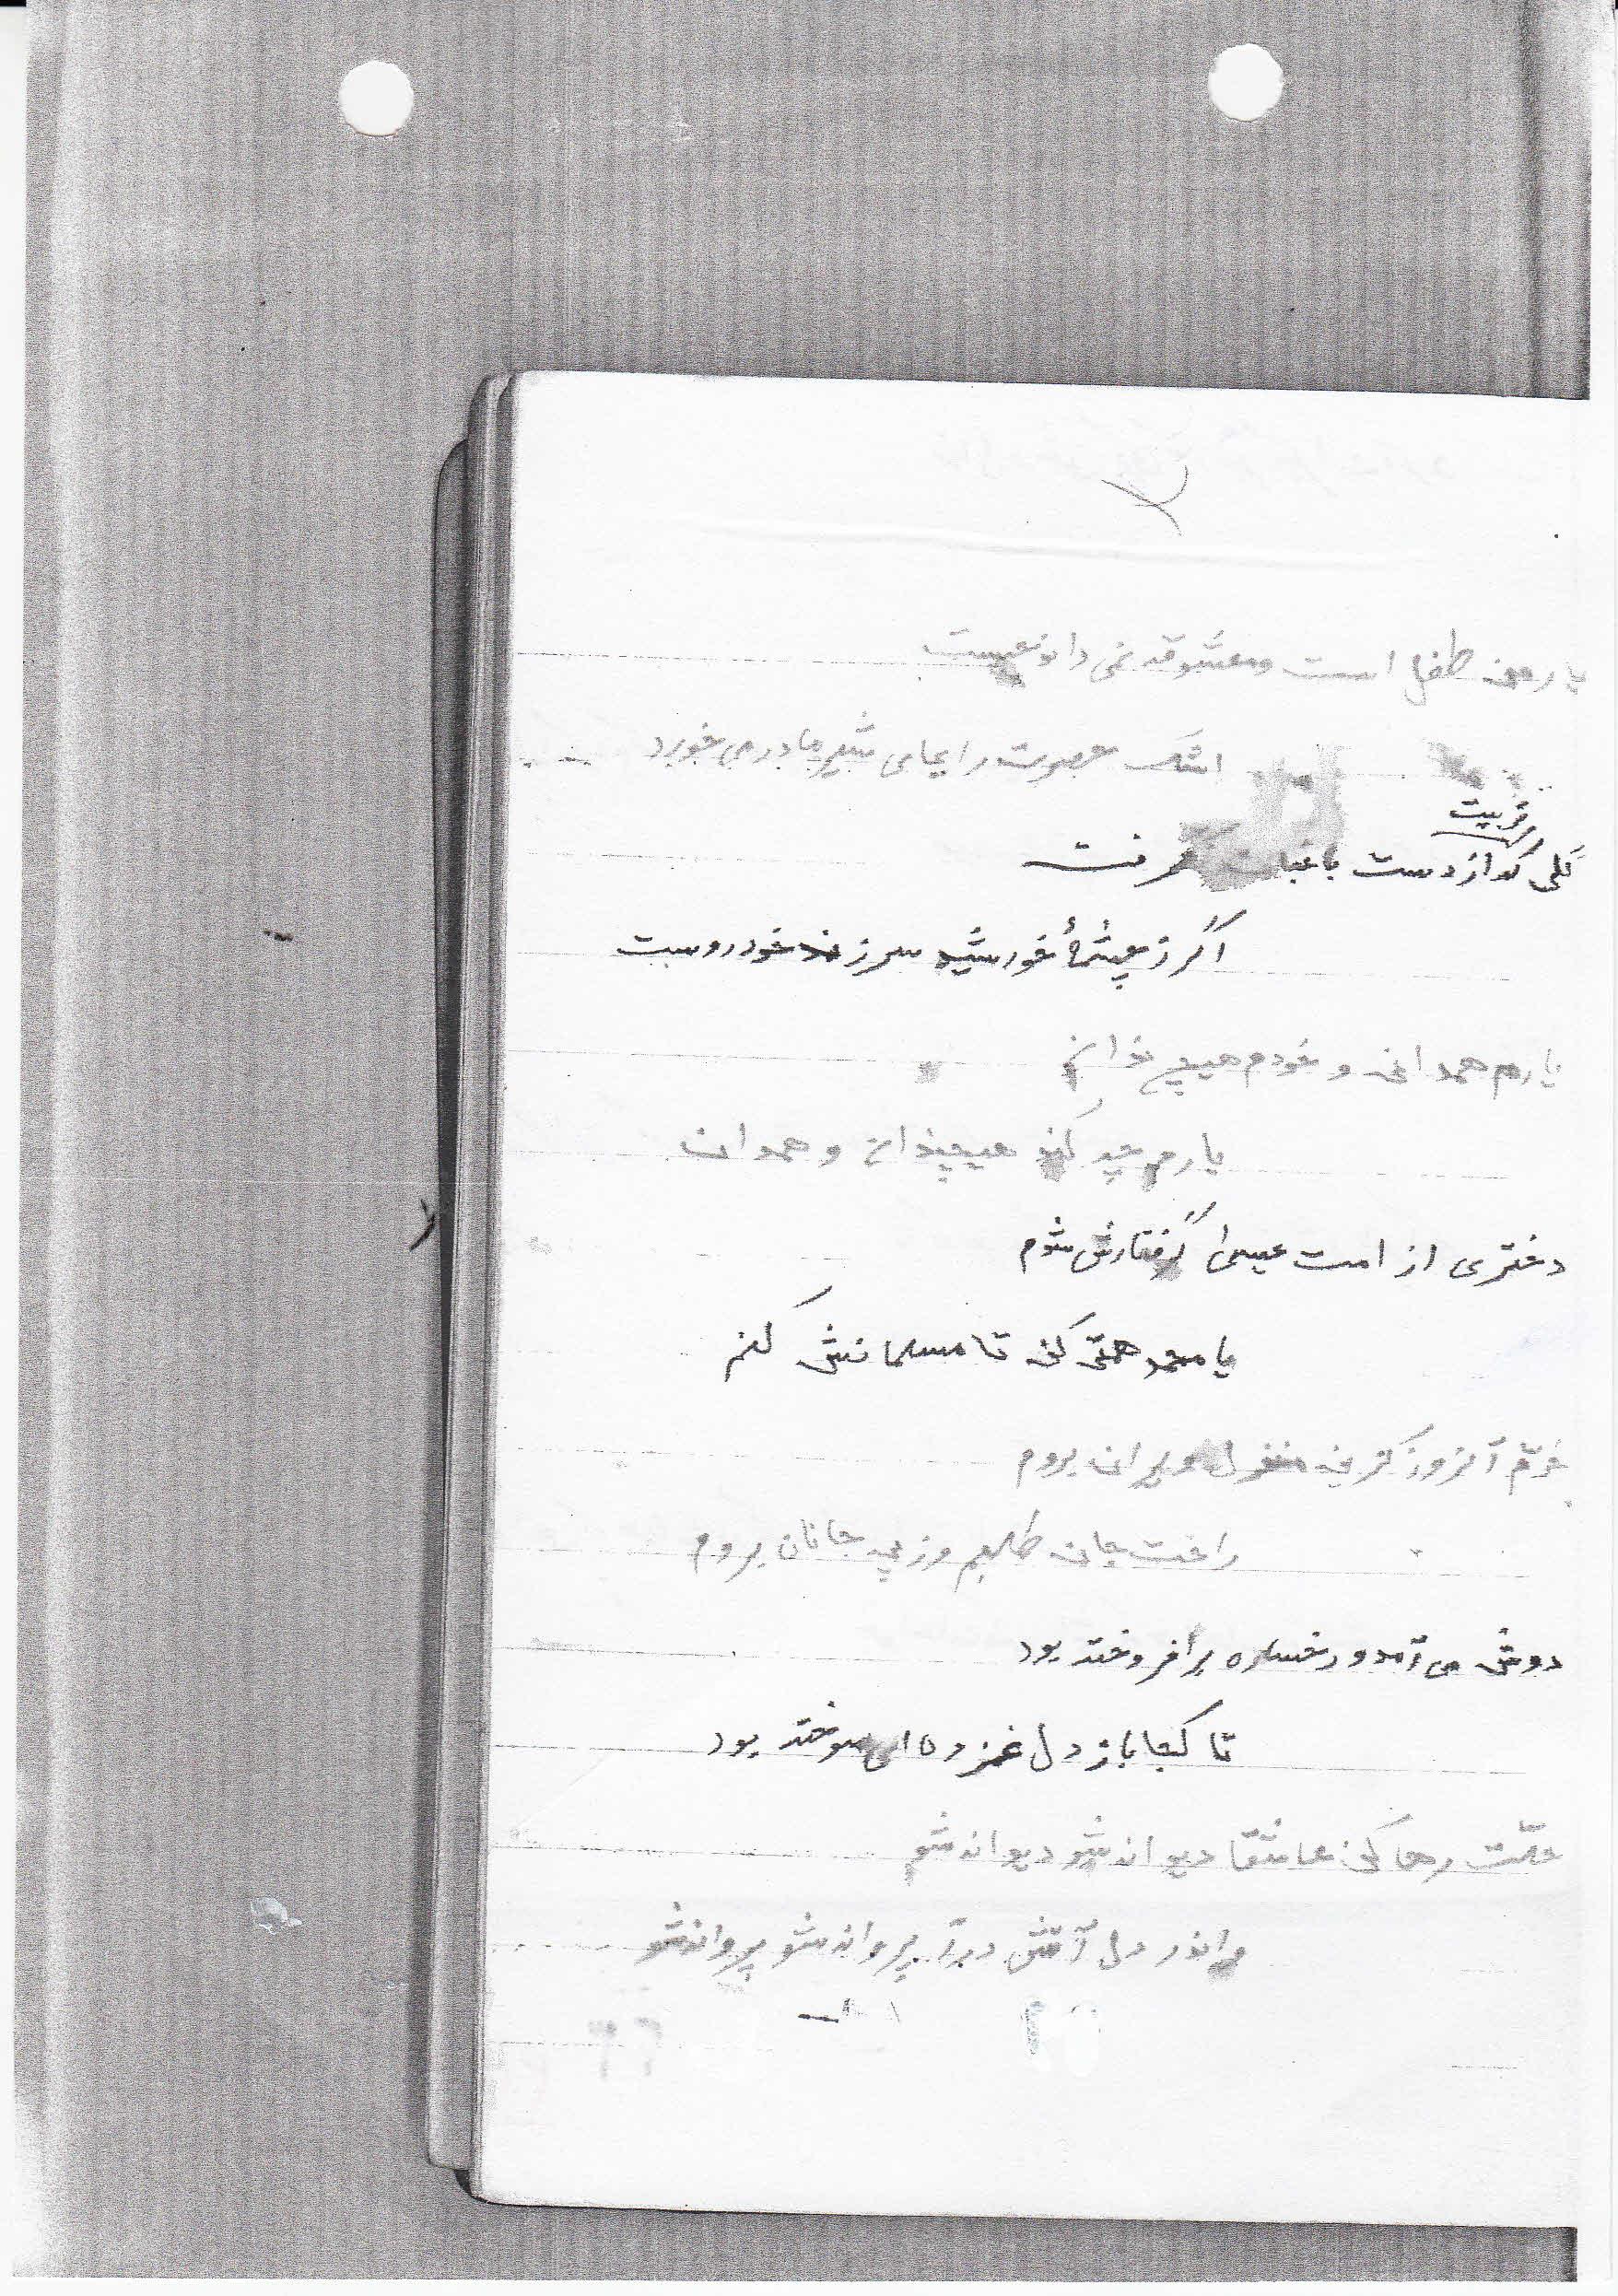 یار من طفل است و معشوقه نمی داند چیست
اشک حسرت را بجای شیر مادر می خورد
تربیت
گلی که از دست باغبان نگرفت
اگر ز چشمهٔ خورشید سر زند خودروست
یارم همدانی و خودم هیچ ندانی
یارب چه کند هیچندان و همدان
دختری از امت عیسی گرفتارش شدم
یا محمد همتی کن تا مسلمانش کنم
خرّم آنروز کزین منزل ویران بروم
راحت جان طلبم وز پی جانان بروم
دوش می آمد و رخساره برافروخته بود
تا کجا باز دل غمزده ای سوخته بود
حیلت رها کن عاشقا دیوانه شو دیوانه شو
و اندر دل آتش درآ پروانه شو پروانه شو